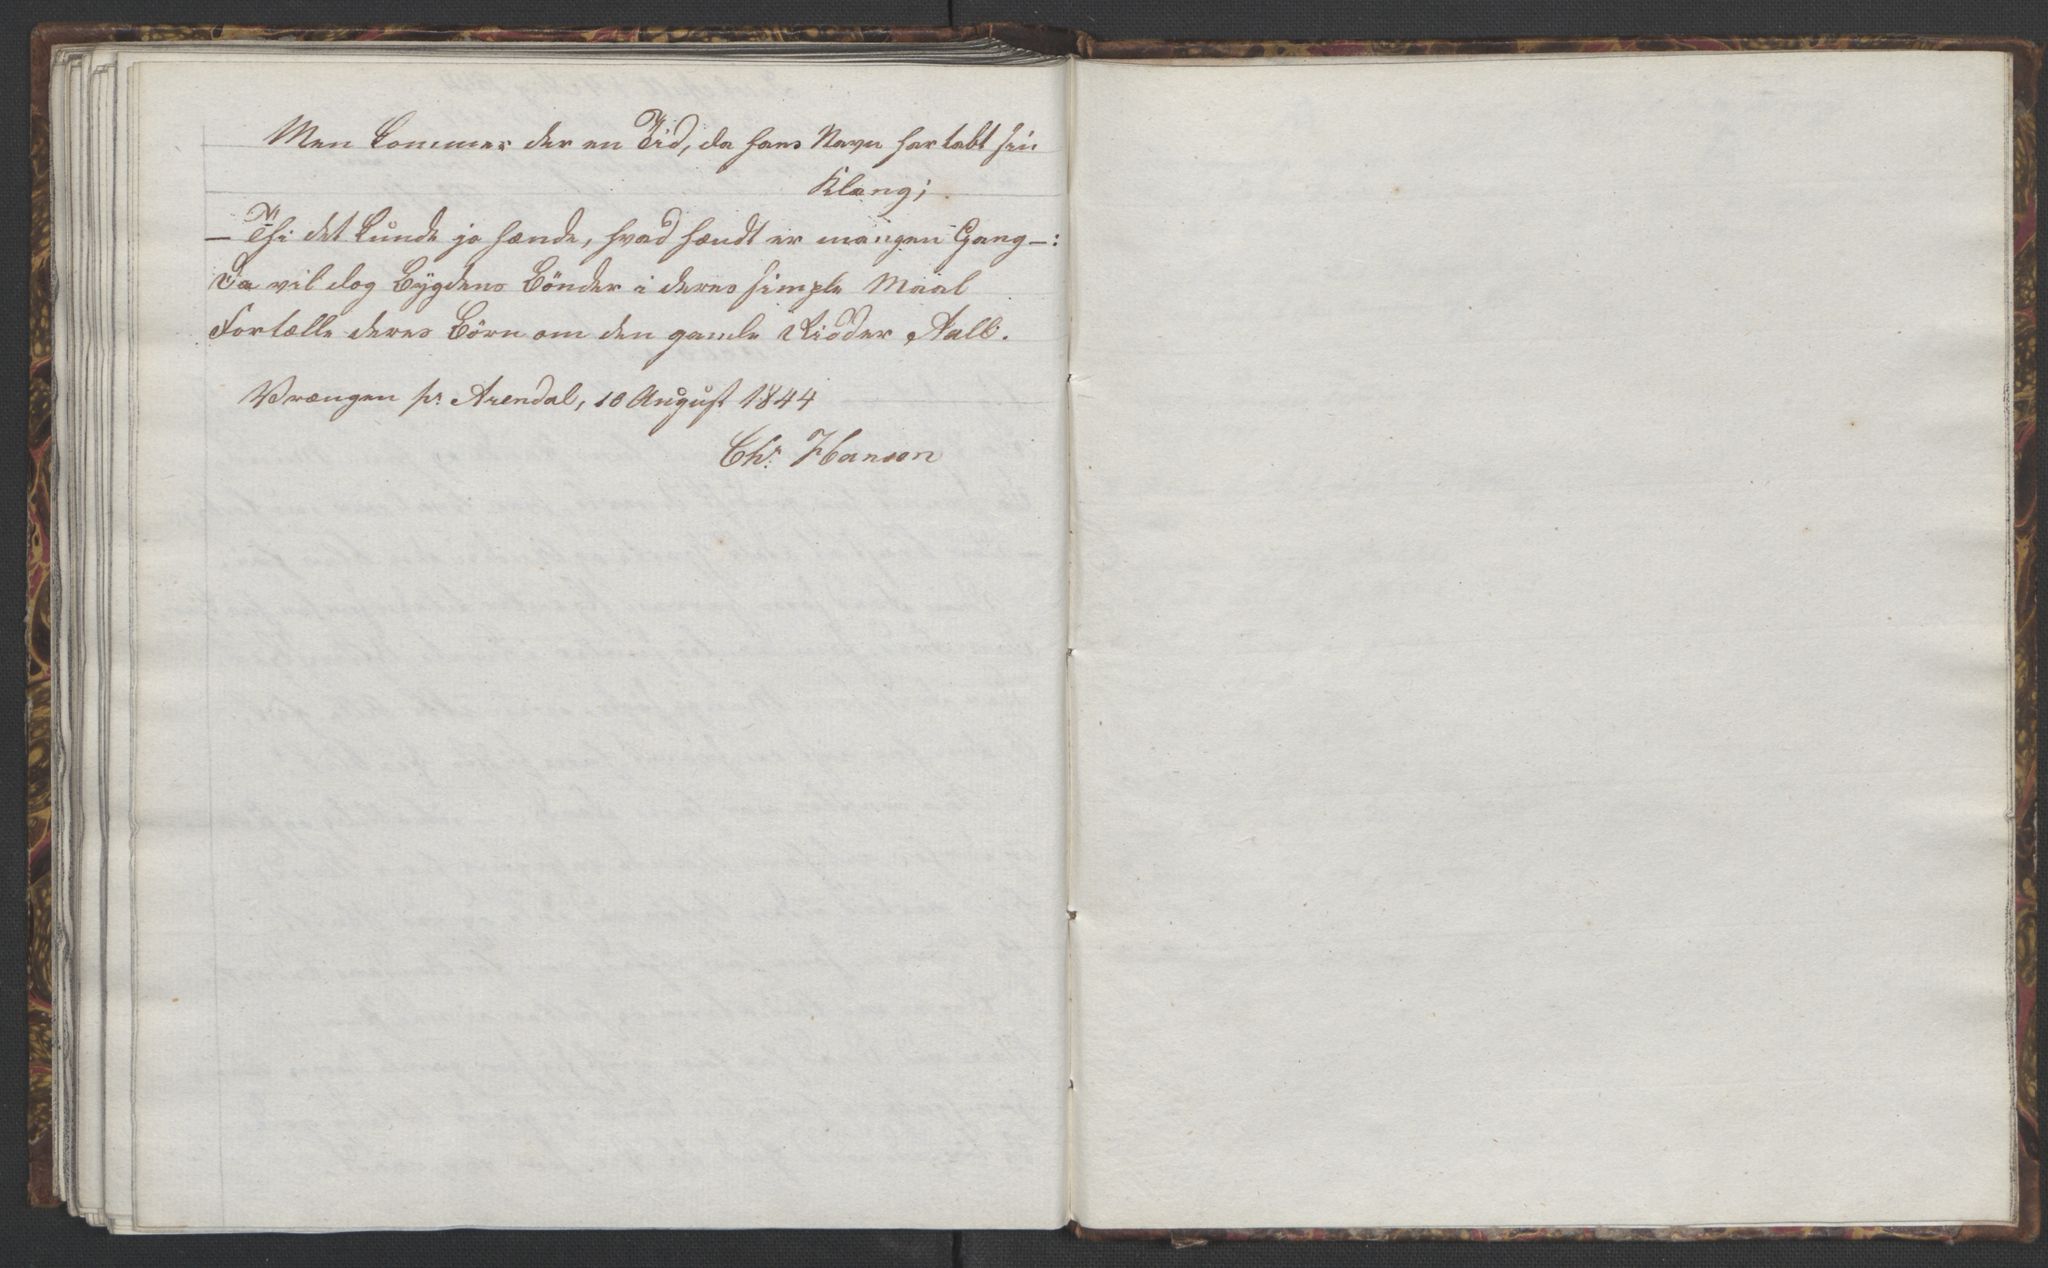 Men kommer der en Tid, da hans Navn har tabt sin
Klang;
— Thi det kunde jo hænde, hvad hændt er mangen Gang —:
Da vil dog Bygdens Bönder i deres simple Maal
Fortælle deres Börn om den gamle Ridder Aall.
Vrængen pr Arendal, 10 August 1844
Chr. Hanson